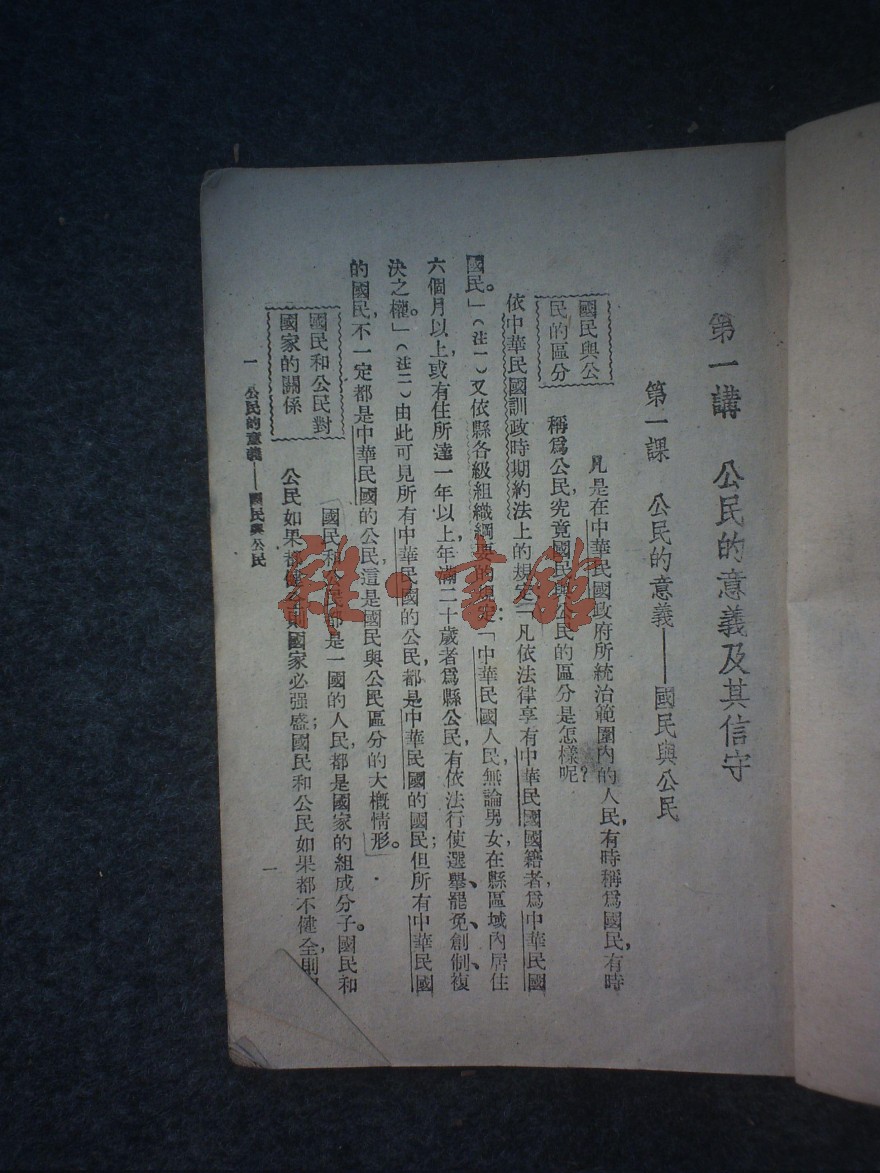 第一講　公民的意義及其信守
第一課　公民的意義——國民與公民
國民與公
民的區分
凡是在中華民國政府所統治範圍內的人民，有時稱爲國民，有時
稱爲公民，究竟國民與公民的區分是怎樣呢？
依中華民國訓政時期約法上的規定「凡依法律享有中華民國國籍者，爲中華民國
國民。」（注一）又依縣各級組織綱要的規定：「中華民國人民，無論男女，在縣區域內居住
六個月以上，或有住所達一年以上，年滿二十歲者爲縣公民，有依法行使選舉、罷免、創制、複
決之權。」（注二）由此可見所有中華民國的公民，都是中華民國的國民；但所有中華民國
的國民，不一定都是中華民國的公民，這是國民與公民區分的大概情形。
國民和公民對
國家的關係
國民和公民都是一國的人民，都是國家的組成分子。國民和
公民如果都健全，則國家必强盛；國民和公民如果都不健全，則
一　公民的意義——國民與公民
一
雜·書館